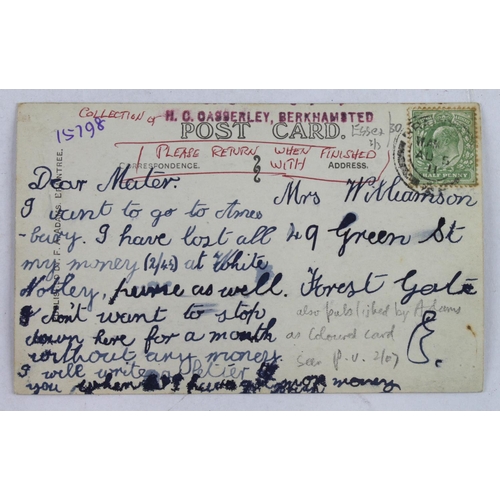 COLLECTION of H. C. CASSERLEY, BERKHAMSTED
15798
POST CARD.
Essex
PLEASE RETURN WHEN FINISHED WITH
CORRESPONDENCE.
ADDRESS.
HALF PENNY
Dear Mater.
I want to go to Ames
bury. I have lost all
my money (2/4½) at White
Notley, purse as well.
I don't want to stop
down here for a month
without any money.
I will write a letter
you when I more money
Mrs Williamson
49 Green St
Forest Gate
E.
also published by Adams
as coloured card
seen p.u. 2/07